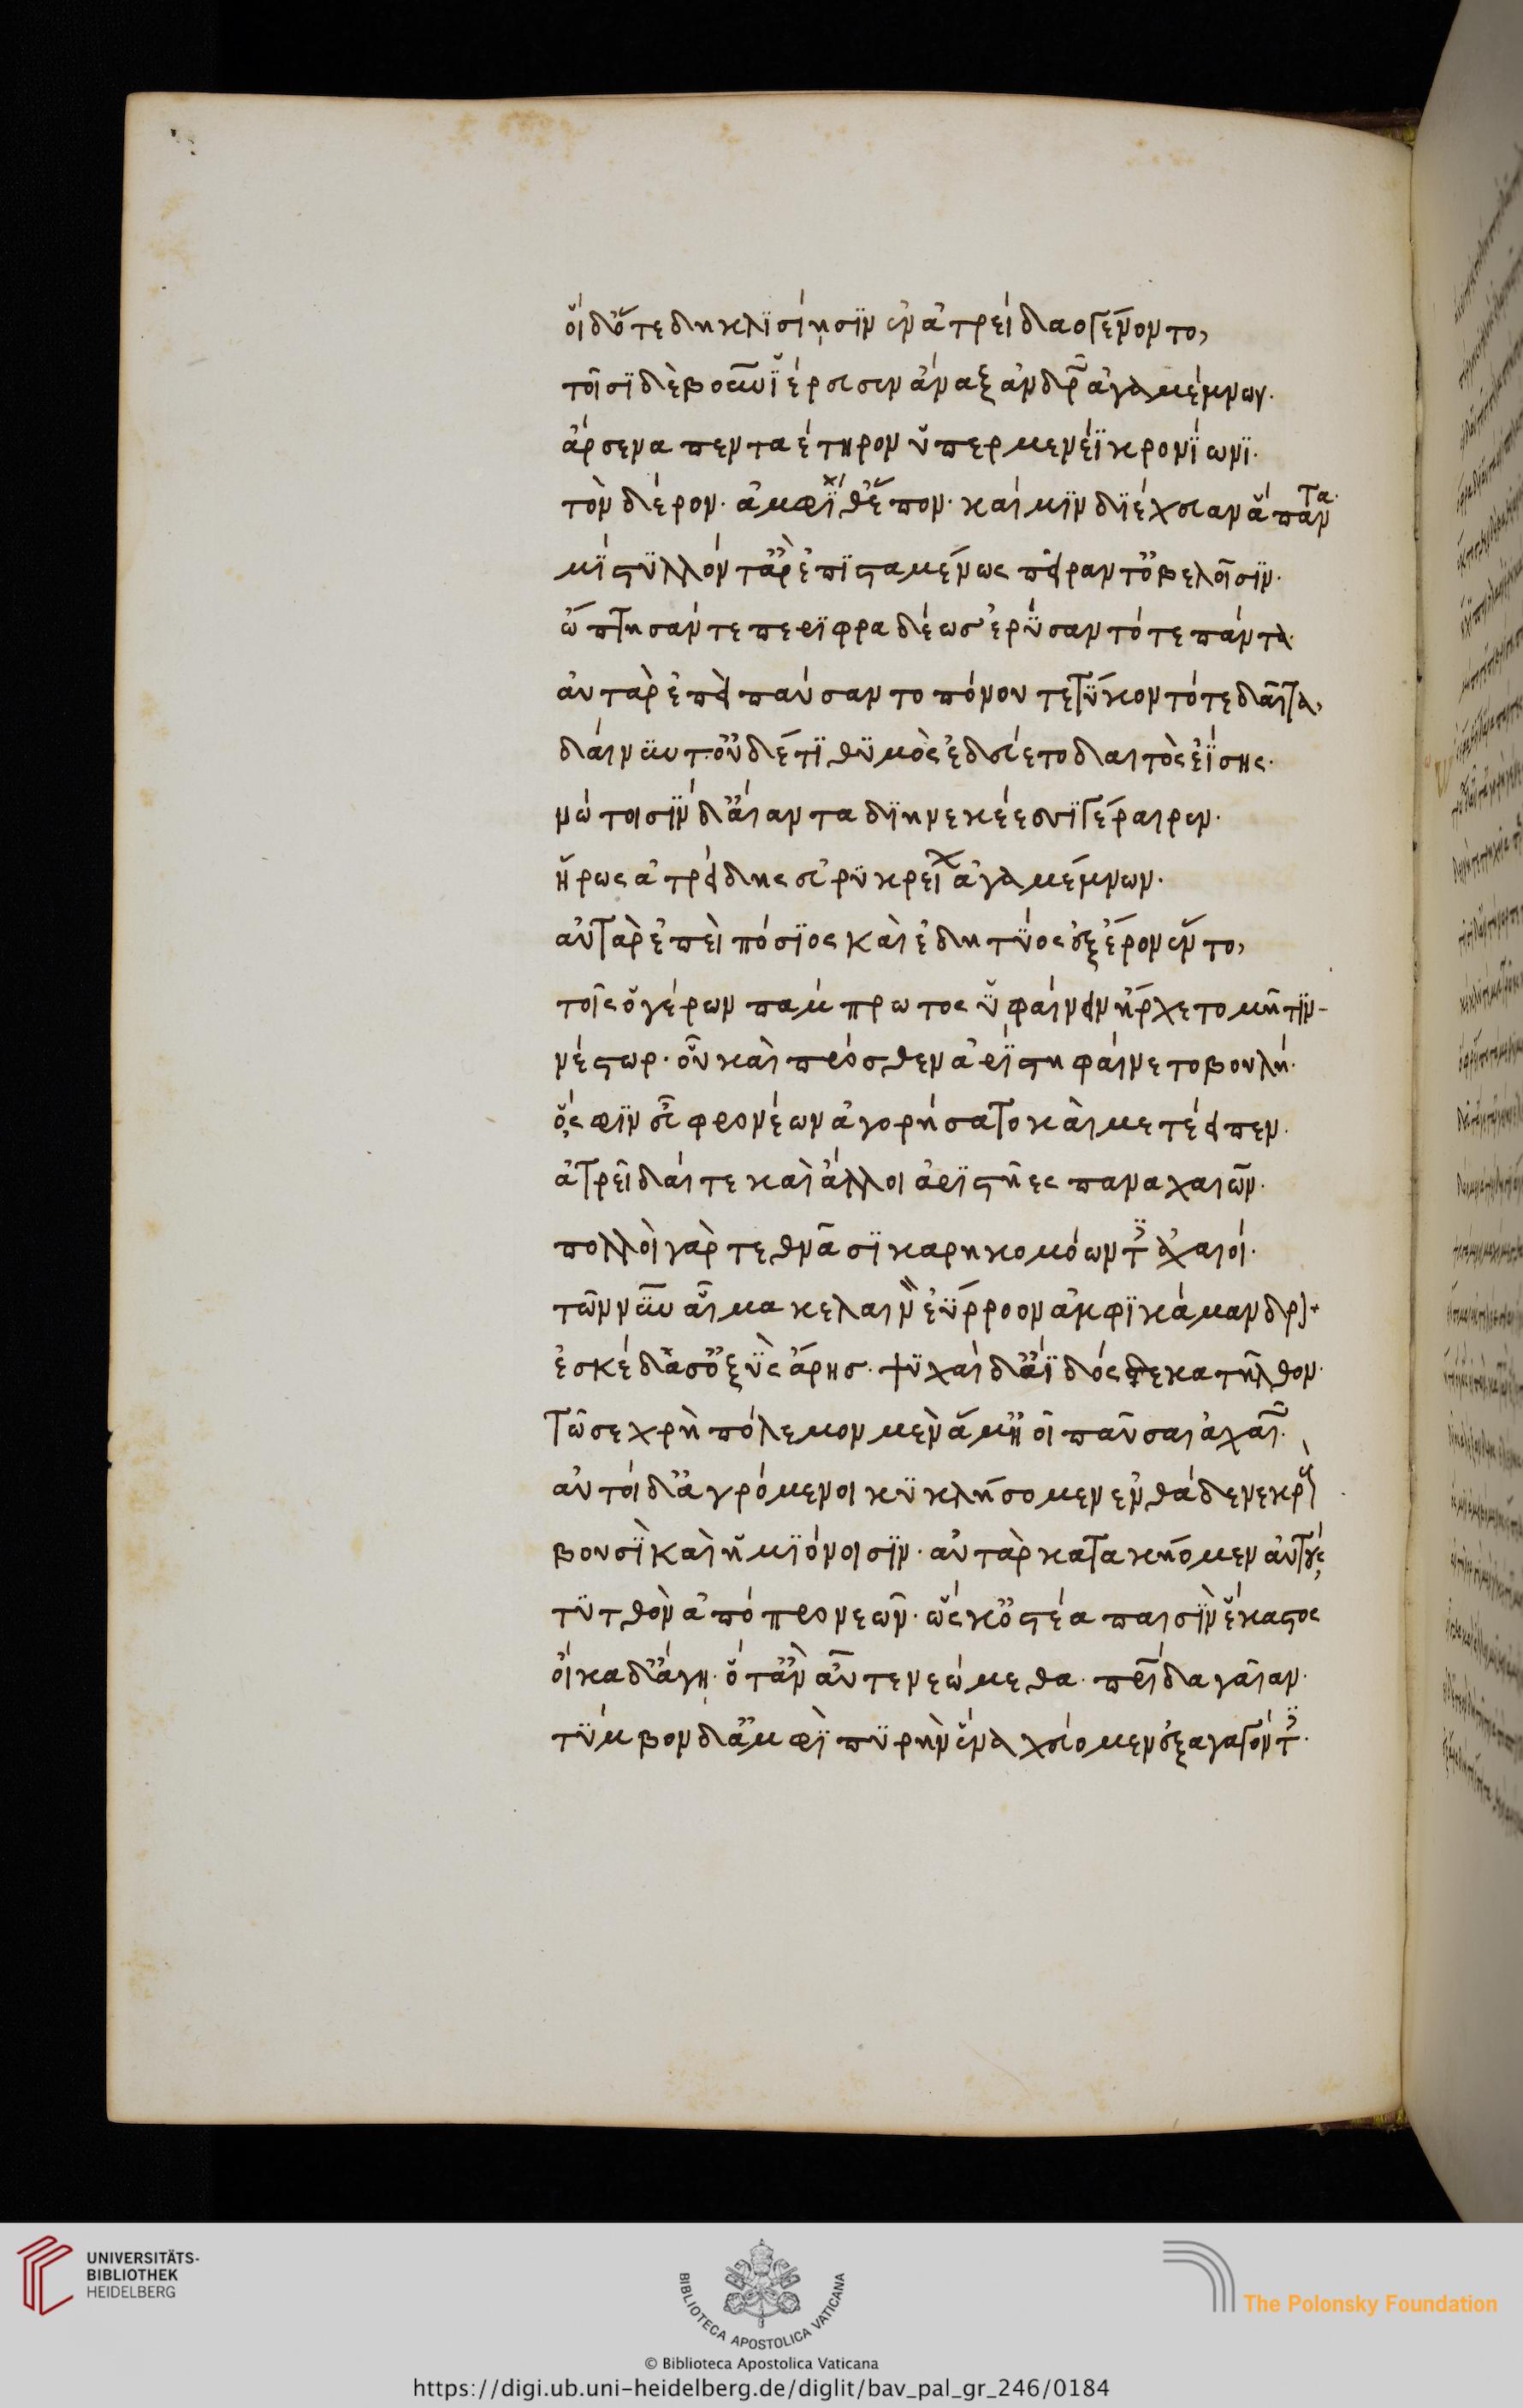 οἱ δ' ὅτε δὴ κλισίῃσιν ἐν ἀτρείδαο γένοντο,
τοῖσι δὲ βοῦν ἱέρευσεν ἄναξ ἀνδρῶν ἀγαμέμνων.
ἄρσενα πενταέτηρον ὑπερμενέϊ κρονίωνι.
τὸν δέρον. ἀμφί θ' ἕπον. καί μιν διέχευαν ἅπαντα.
μίστυλλόν τ' ἄρ' ἐπισταμένως πεῖραν τ' ὀβελοῖσιν.
ὤπτησάν τε περιφραδέως ἐρύσαντό τε πάντα.
αὐτὰρ ἐπεὶ παύσαντο πόνου τετύκοντό τε δαῖτα,
δαίνυντ' οὐδέ τι θυμὸς ἐδεύετο δαιτὸς ἐΐσης.
νώτοισιν δ' αἴαντα διηνεκέεσσι γέραιρεν.
ἥρως ἀτρείδης εὐρυκρείων ἀγαμέμνων.
αὐτὰρ ἐπεὶ πόσιος καὶ ἐδητύος ἐξ ἔρον ἕντο,
τοῖς ὁ γέρων πάμπρωτος ὑφαίνειν ἤρχετο μῆτιν
νέστωρ. οὗ καὶ πρόσθεν ἀρίστη φαίνετο βουλή.
ὅς σφιν εὖ φρονέων ἀγορήσατο καὶ μετέειπεν.
ἀτρεῖδαί τε καὶ ἄλλοι ἀριστῆες παναχαιῶν.
πολλοὶ γάρ τεθνᾶσι καρηκομόωντες ἀχαιοί.
τῶν νῦν αἷμα κελαινὸν ἐΰρροον ἀμφὶ κάμανδρον
ἐσκέδασ' ὀξὺς ἄρης. ψυχαὶ δ' ἄϊδός δε κατῆλθον.
τῶ σε χρὴ πόλεμον μὲν ἅμ' ἠοῖ παῦσαι ἀχαιῶν.
αὐτοὶ δ' ἀγρόμενοι κυκλήσομεν ἐνθάδε νεκροὺς
βουσὶ καὶ ἡμιόνοισιν. αὐτὰρ κατακήομεν αὐτοὺς
τυτθὸν ἀπὸ πρὸ νεῶν. ὥς κ' ὀστέα παισὶν ἕκαστος
οἴκαδ' ἄγῃ. ὅτ' ἂν αὖτε νεώμεθα πατρίδα γαῖαν.
τύμβον δ' ἀμφὶ πυρὴν ἕνα χεύομεν ἐξαγαγόντες.
UNIVERSITÄTS-
BIBLIOTHEK
HEIDELBERG
BIBLIOTECA APOSTOLICA VATICANA
The Polonsky Foundation
© Biblioteca Apostolica Vaticana
https://digi.ub.uni-heidelberg.de/diglit/bav_pal_gr_246/0184